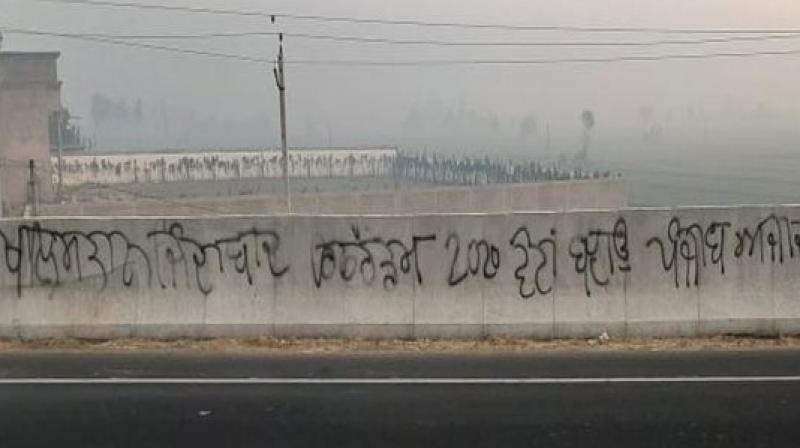 ਖਾਲਿਸਤਾਨ ਜਿੰਦਾਬਾਦ ਰਾਫਰੈਂਡਮ 2020 ਵੋਟਾਂ ਬਣਾਓ ਪੰਜਾਬ ਅਜਾਦ